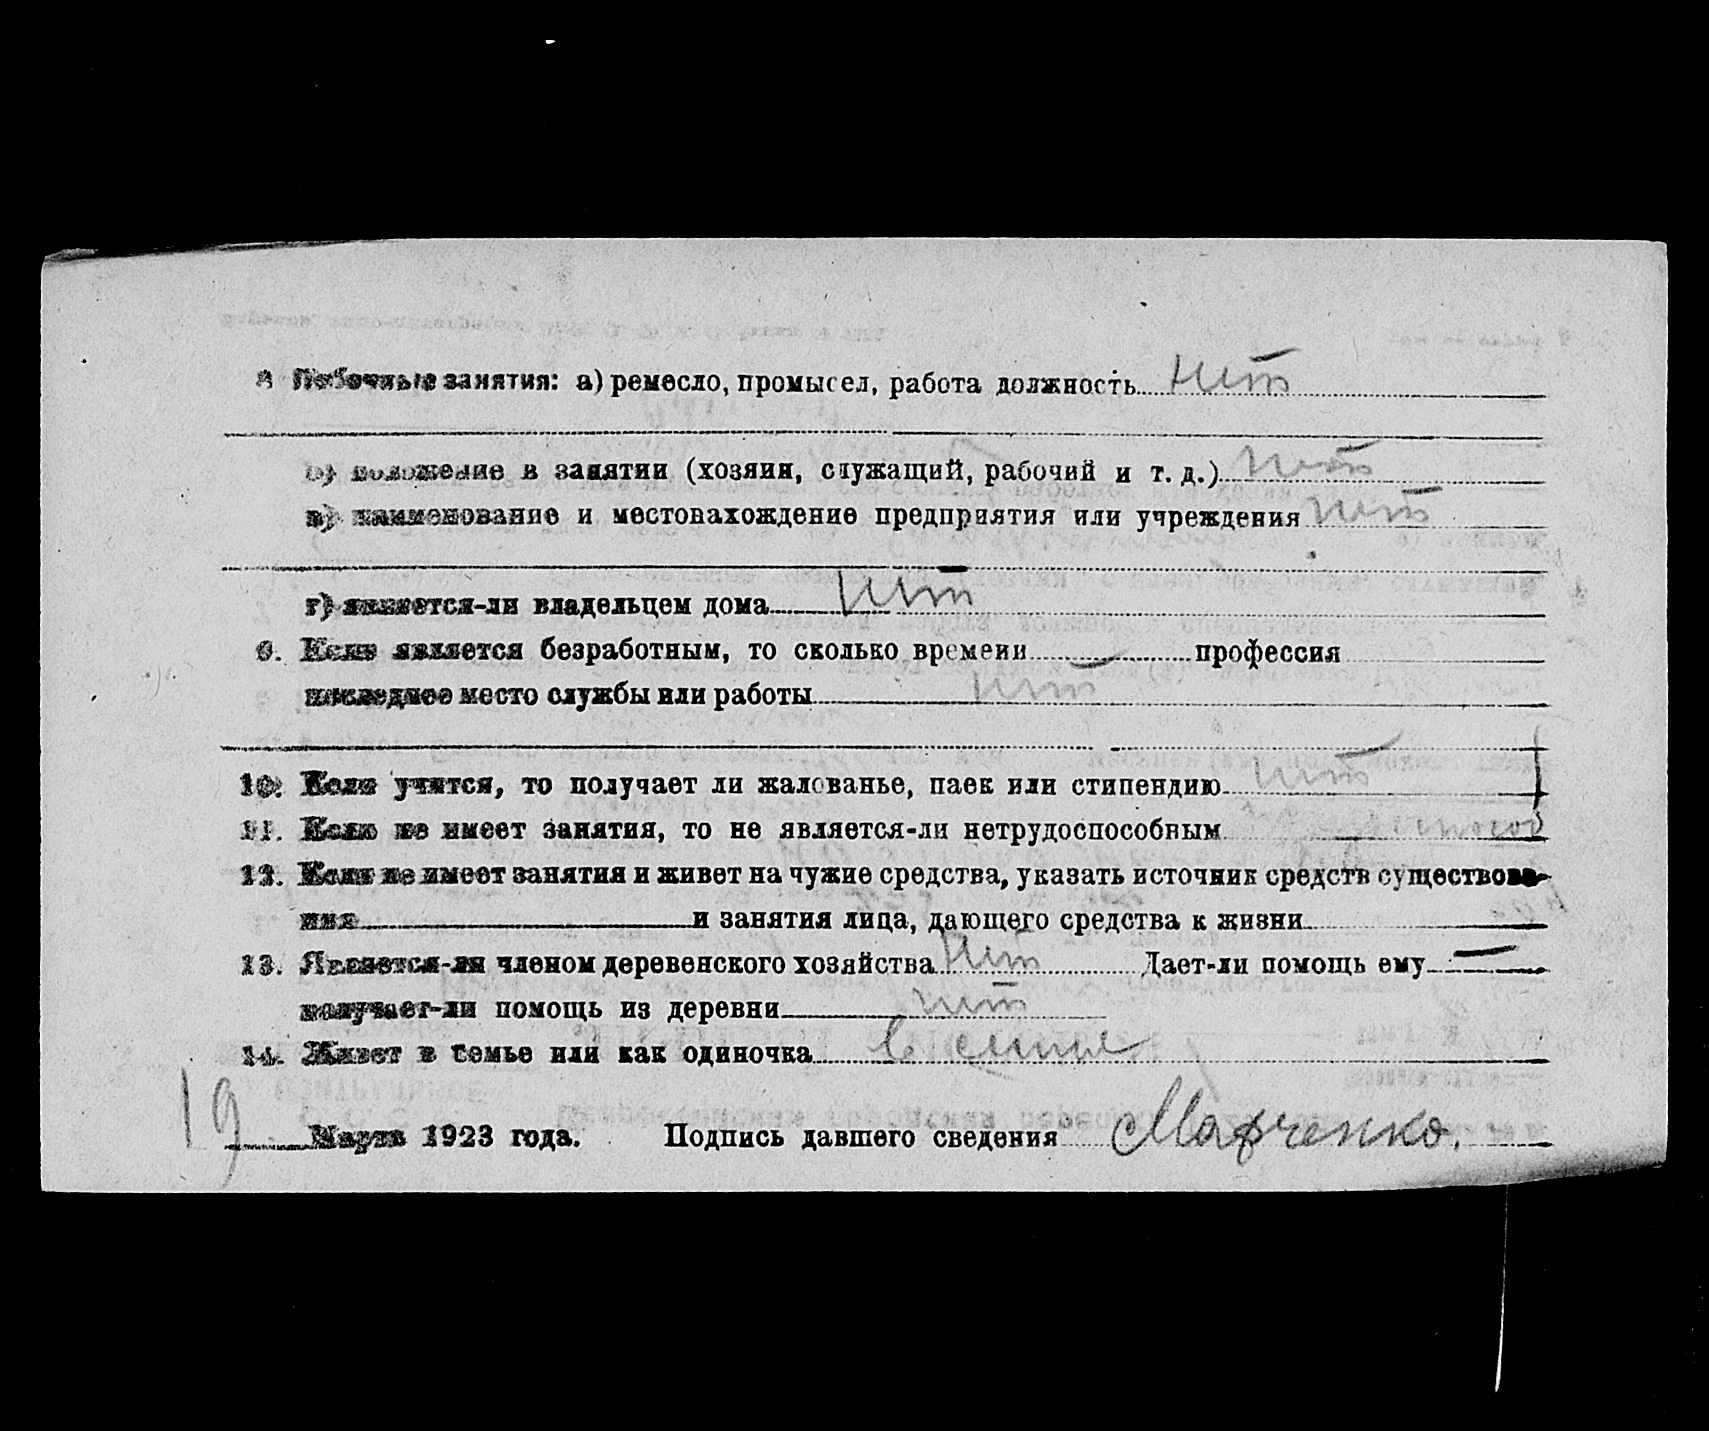 8 Побочные занятия: а) ремесло, промысел, работа должность нет
б) положение в занятии (хозяин, служащий, рабочий и т. д.) нет
в) наименование и местонахождение предприятия или учреждения нет
г) является-ли владельцем дома нет
9. Если является безработным, то сколько времени профессия
последнее место службы или работы нет
10. Если учится, то получает ли жалованье, паек или стипендию нет
11. Если не имеет занятия, то не является-ли нетрудоспособным
12. Если не имеет занятия и живет на чужие средства, указать источник средств существова-
ния и занятия лица, дающего средства к жизни
13. Является-ли членом деревенского хозяйства Нет Дает-ли помощь ему —
получает-ли помощь из деревни нет
14. Живет в семье или как одиночка в семье
19 Марта 1923 года. Подпись давшего сведения Марченко.